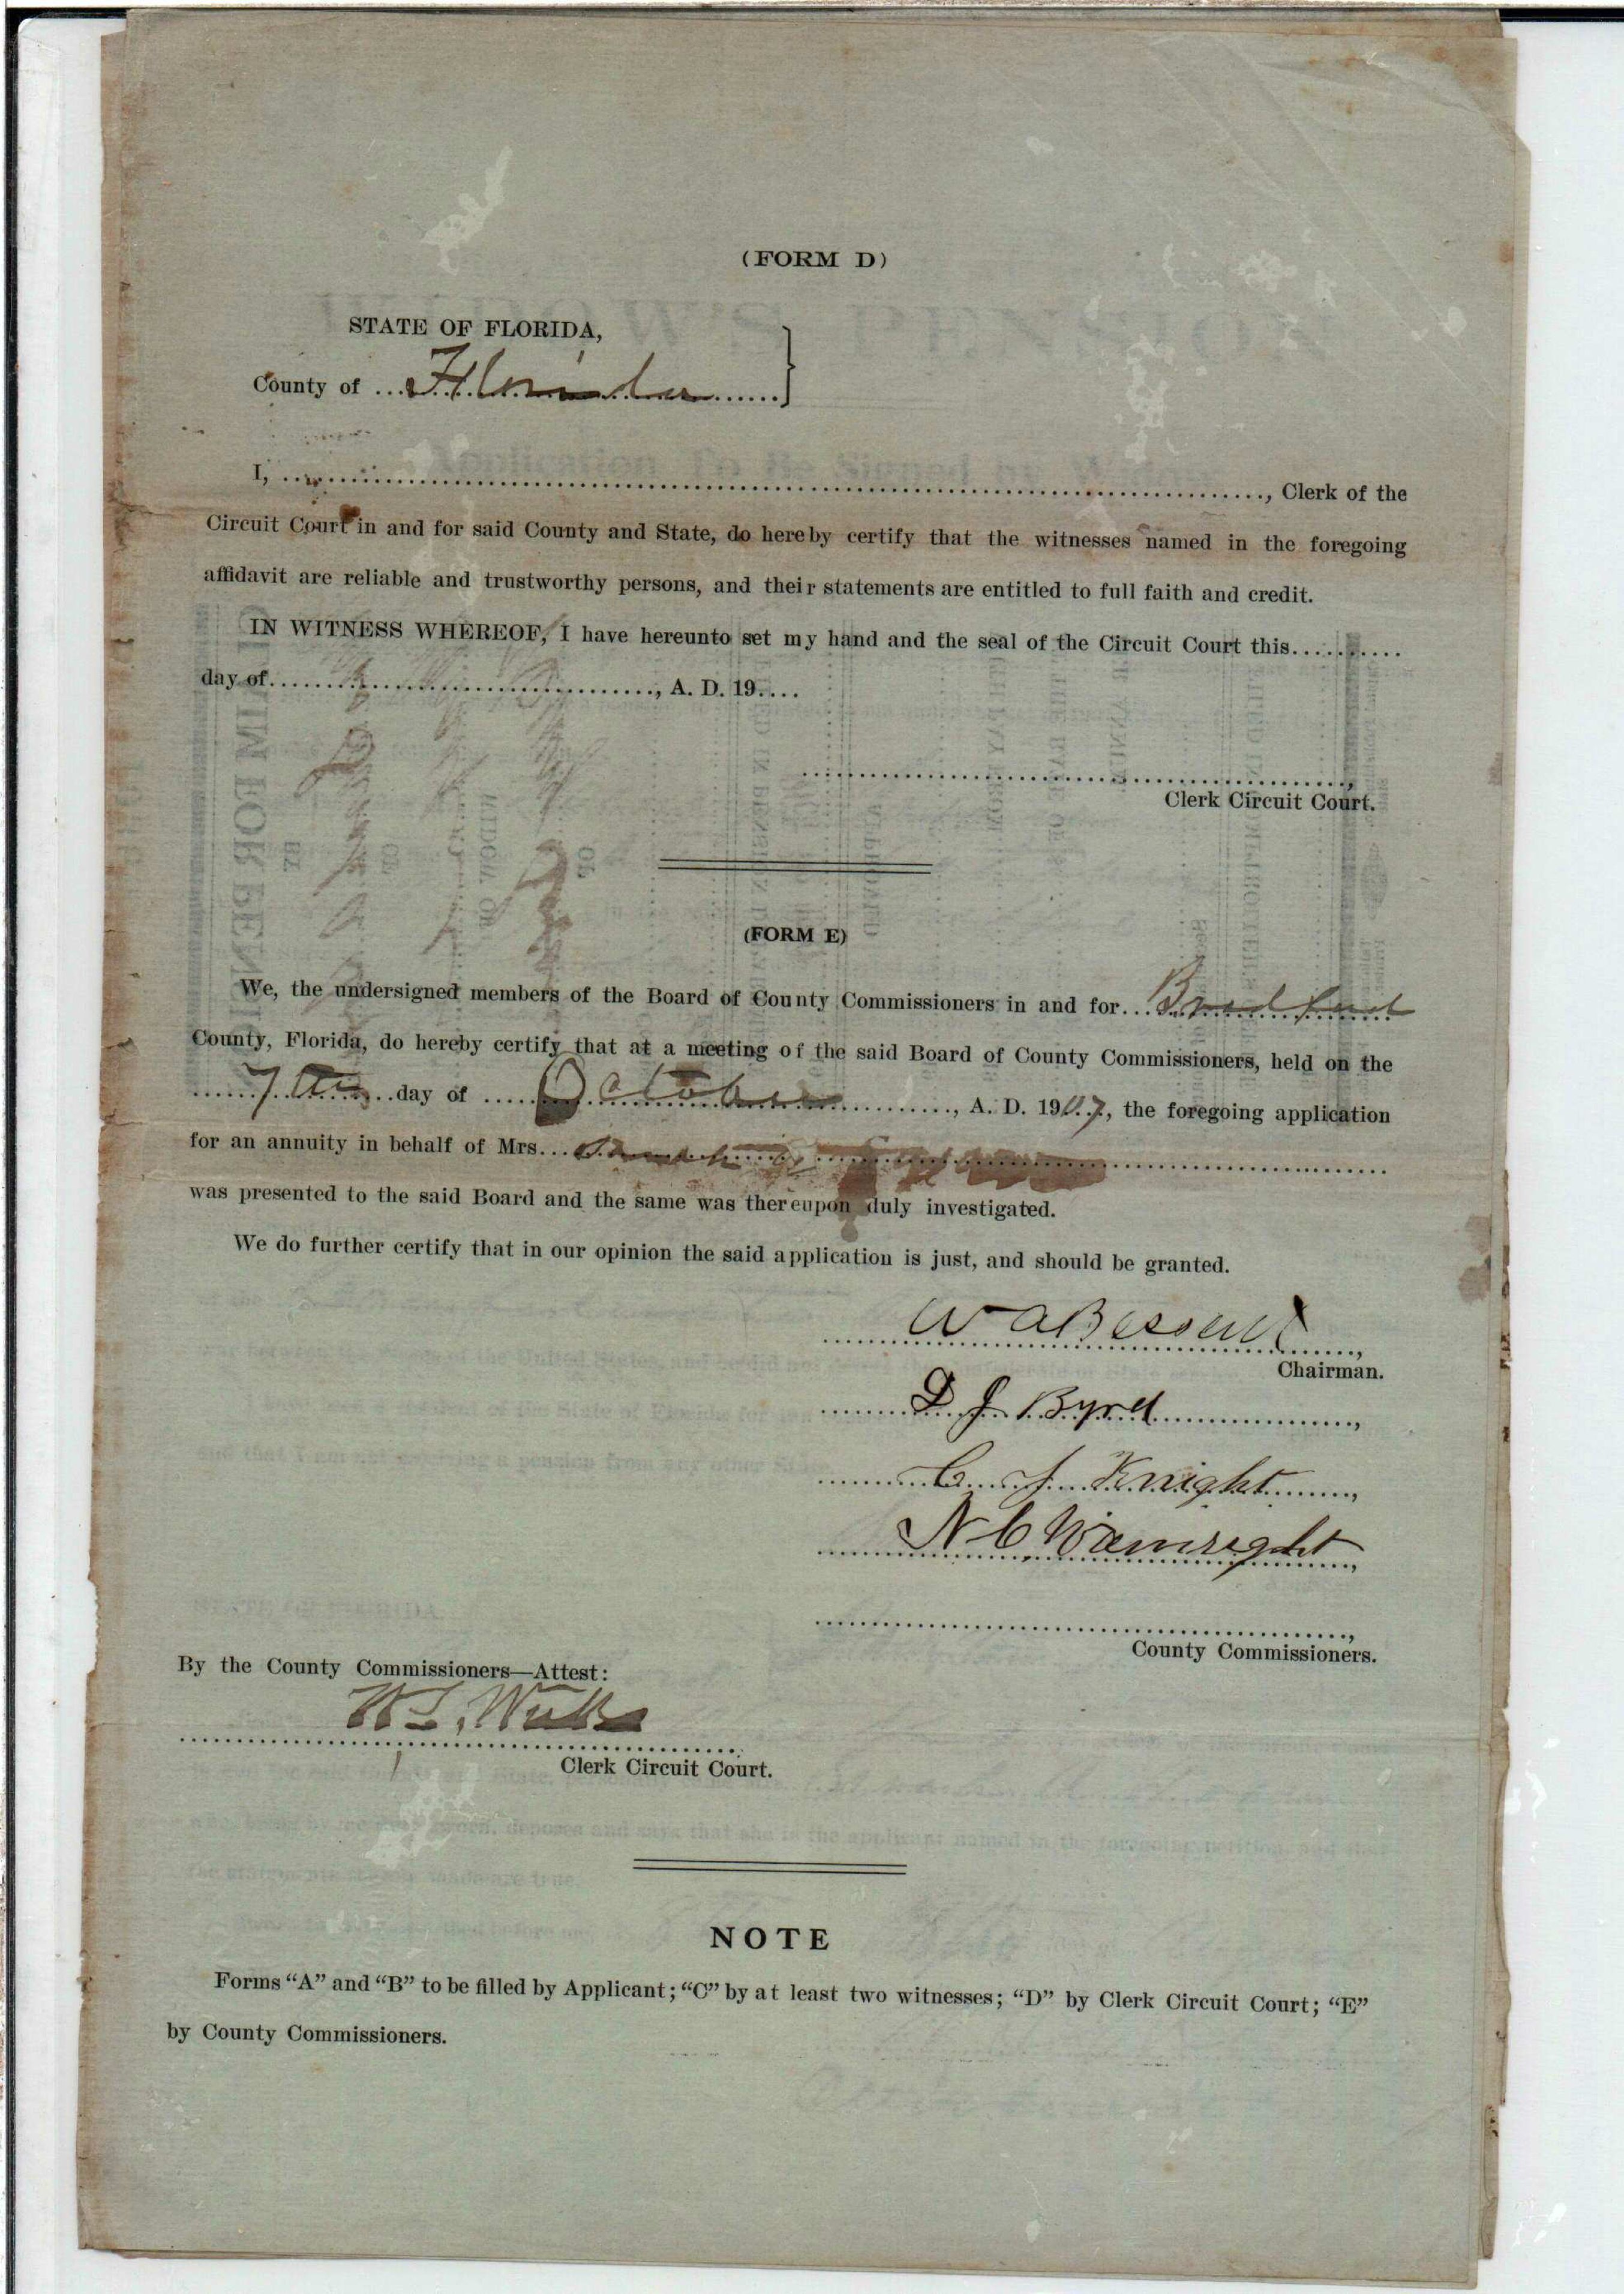 (FORM D)
STATE OF FLORIDA,
County of Florida
I, ........................................, Clerk of the
Circuit Court in and for said County and State, do hereby certify that the witnesses named in the foregoing
affidavit are reliable and trustworthy persons, and their statements are entitled to full faith and credit.
IN WITNESS WHEREOF, I have hereunto set my hand and the seal of the Circuit Court this..........
day of........................................, A. D. 19....
Clerk Circuit Court.
(FORM E)
We, the undersigned members of the Board of County Commissioners in and for Bradford
County, Florida, do hereby certify that at a meeting of the said Board of County Commissioners, held on the
7th day of October, A. D. 1907, the foregoing application
for an annuity in behalf of Mrs.
was presented to the said Board and the same was thereupon duly investigated.
We do further certify that in our opinion the said application is just, and should be granted.
W A Bessent
Chairman.
D J Byrd
C. J. Knight
N C Wainright
County Commissioners.
By the County Commissioners—Attest:
Clerk Circuit Court.
NOTE
Forms "A" and "B" to be filled by Applicant; "C" by at least two witnesses; "D" by Clerk Circuit Court; "E"
by County Commissioners.